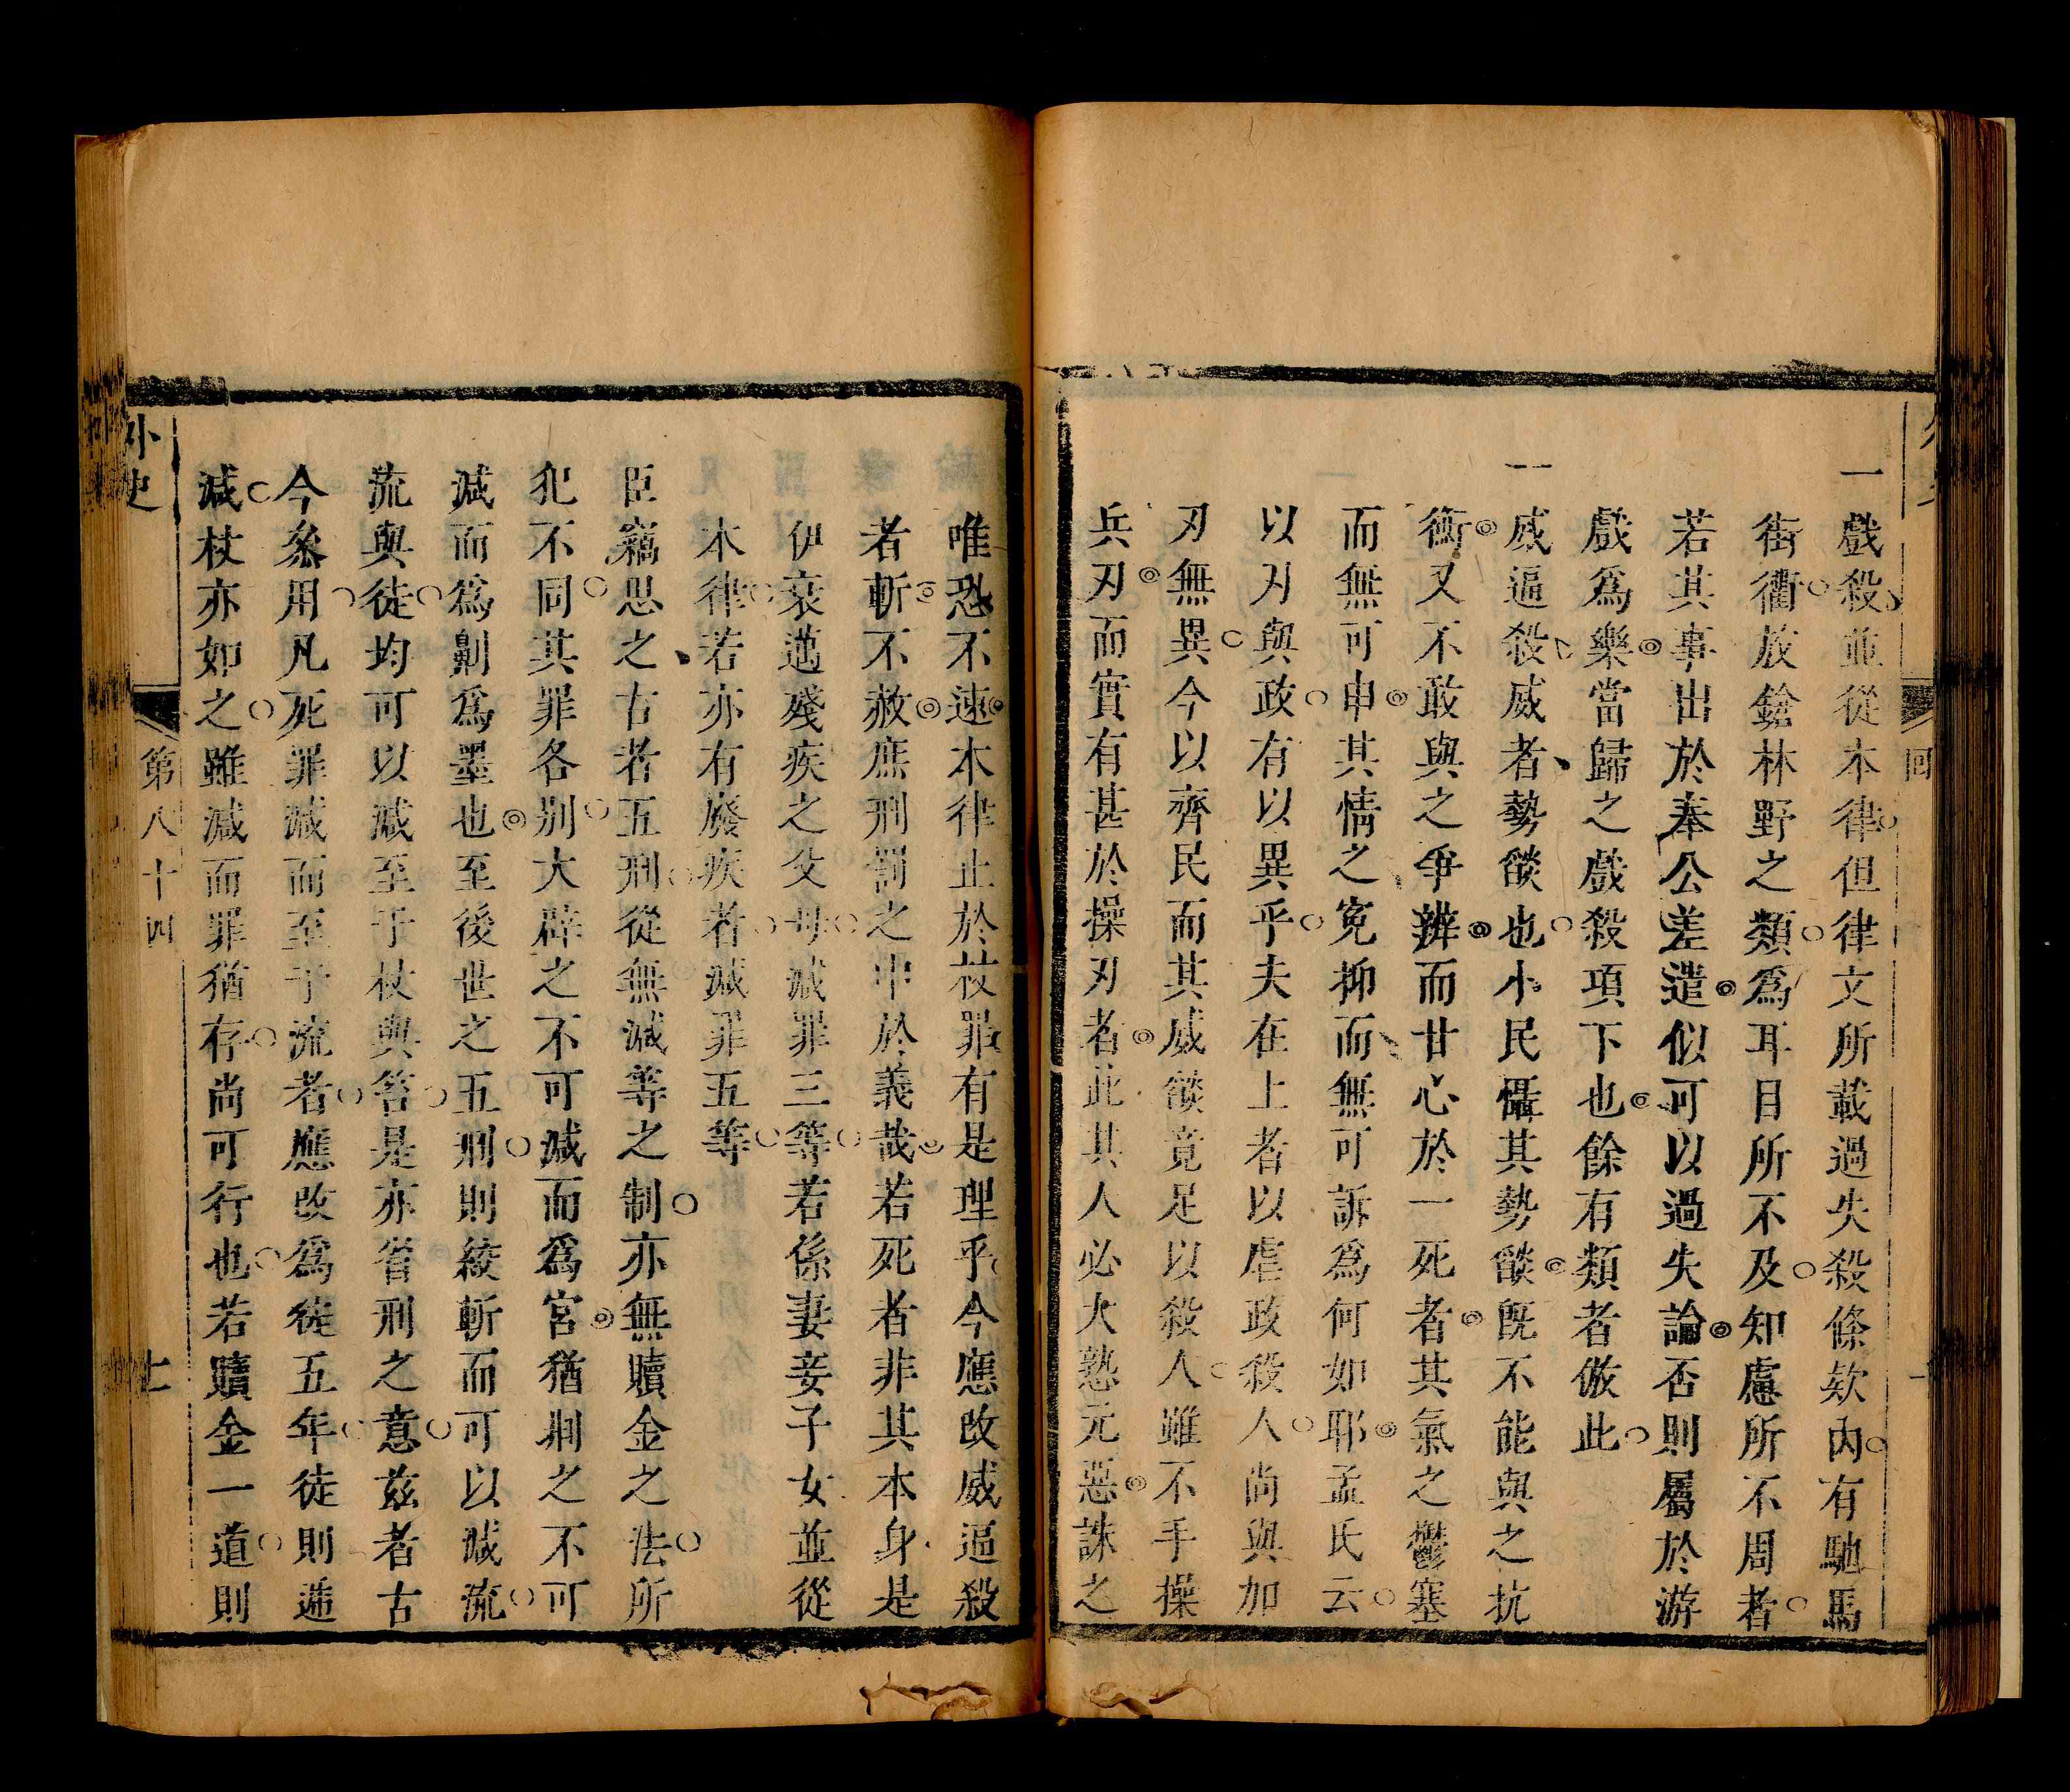 一戲殺並從本律但律文所載過失殺條欵內有馳馬
街衢放鎗林野之類爲耳目所不及知慮所不周者
若其事出於奉公差遣似可以過失論否則屬於游
戲爲樂當歸之戲殺項下也餘有類者倣此
一威逼殺威者勢燄也小民懾其勢燄旣不能與之抗
衡又不敢與之爭辨而甘心於一死者其氣之鬱塞
而無可申其情之寃抑而無可訴爲何如耶孟氏云
以刃與政有以異乎夫在上者以虐政殺人尚與加
刃無異今以齊民而其威燄竟足以殺人雖不手操
兵刃而實有甚於操刃者此其人必大憝元惡誅之
唯恐不速本律止於杖罪有是理乎今應改威逼殺
者斬不赦庶刑罰之中於義哉若死者非其本身是
伊衰邁殘疾之父母減罪三等若係妻妾子女並從
本律若亦有廢疾者減罪五等
臣竊思之古者五刑從無減等之制亦無贖金之法所
犯不同其罪各別大辟之不可減而爲宮猶刖之不可
減而爲劓爲墨也至後世之五刑則絞斬而可以減流
流與徒均可以減至于杖與笞是亦省刑之意兹者古
今叅用凡死罪減而至于流者應改爲徒五年徒則遞
減杖亦如之雖減而罪猶存尚可行也若贖金一道則
外史
第八十四
七
回